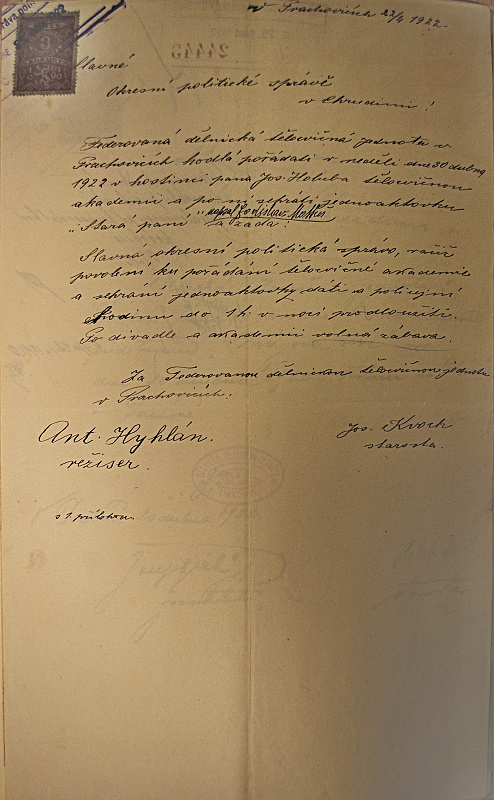 v Prachovicích 22/4 1922.
24443
Slavné
Okresní politické správě
v Chrudimi!
Federovaná dělnická tělocvičná jednota v
Prachovicích hodlá pořádati v neděli dne 30 dubna
1922 v hostinci pana Jos. Holuba tělocvičnou
akademii a po ní sehráti jednoaktovku
"Stará paní
žádá:
Slavná okresní politická správo, račiž
povolení ku pořádání tělocvičné akademie
a sehrání jednoaktovky dáti a policejní
hodinu do 1 h. v noci prodloužiti.
Po divadle a akademii volná zábava.
Za Federovanou dělnickou tělocvičnou jednotu
v Prachovicích:
Ant. Hyhlán.
režiser.
Jos. Kvoch
starosta.
s 1 přílohou.